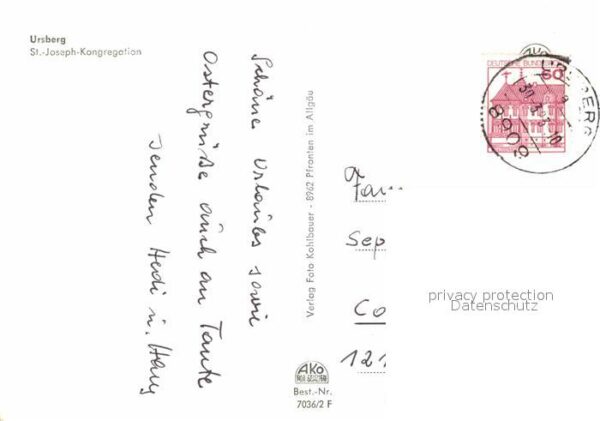 Ursberg
St.-Joseph-Kongregation
Schöne Urlaubs sowie
Ostergrüße auch an Tante
senden Hedi u. Hans
Verlag Foto Kohlbauer - 8962 Pfronten im Allgäu
AKO
Best.-Nr.
7036/2 F
DEUTSCHE BUNDES
60
URSBERG
8909
Fam
Sep
Co
121
privacy protection
Datenschutz